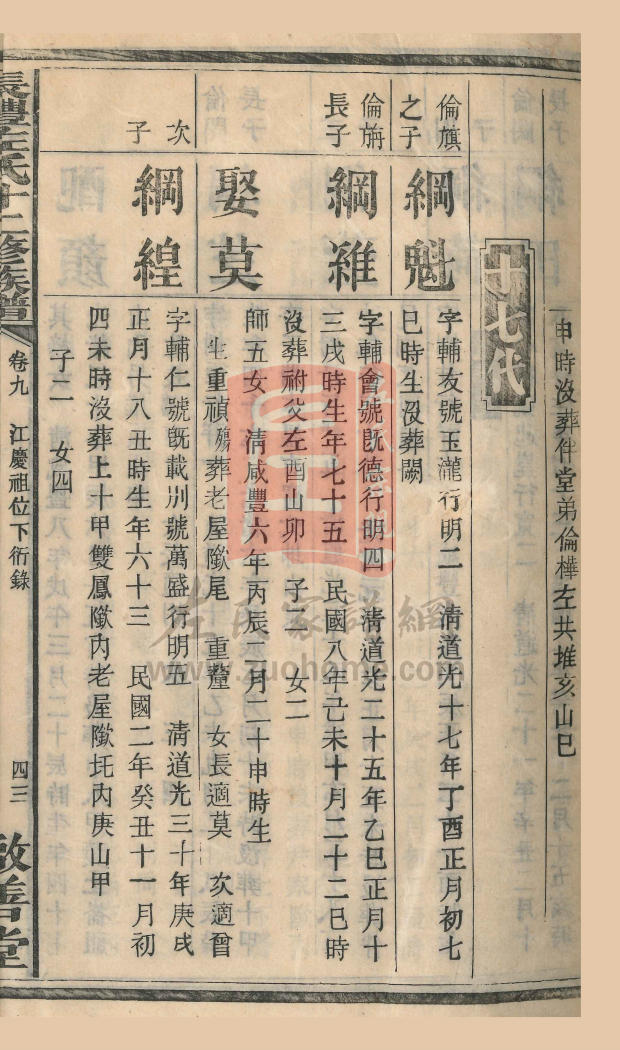 申時沒葬伴堂弟倫樺左共堆亥山巳
十七代
倫旗之子
綱魁
字輔友號玉瀧行明二 清道光十七年丁酉正月初七
巳時生沒葬闕
倫旃長子
綱雅
字輔會號既德行明四 清道光二十五年乙巳正月十
三戌時生年七十五 民國八年己未十月二十二巳時
沒葬祔父左酉山卯 子二 女二
娶莫
師五女 清咸豐六年丙辰 月二十申時生
生重禎殤葬老屋隞尾 重釐 女長適莫 次適曾
次子
綱綋
字輔仁號既載別號萬盛行明五 清道光三十年庚戌
正月十八丑時生年六十三 民國二年癸丑十一月初
四未時沒葬上十甲雙鳳隞內老屋隞圫內庚山甲
子二 女四
長澧左氏十二修族譜
卷九
江慶祖位下衍錄
四三
敦善堂
左氏家譜網
www.zuohome.com